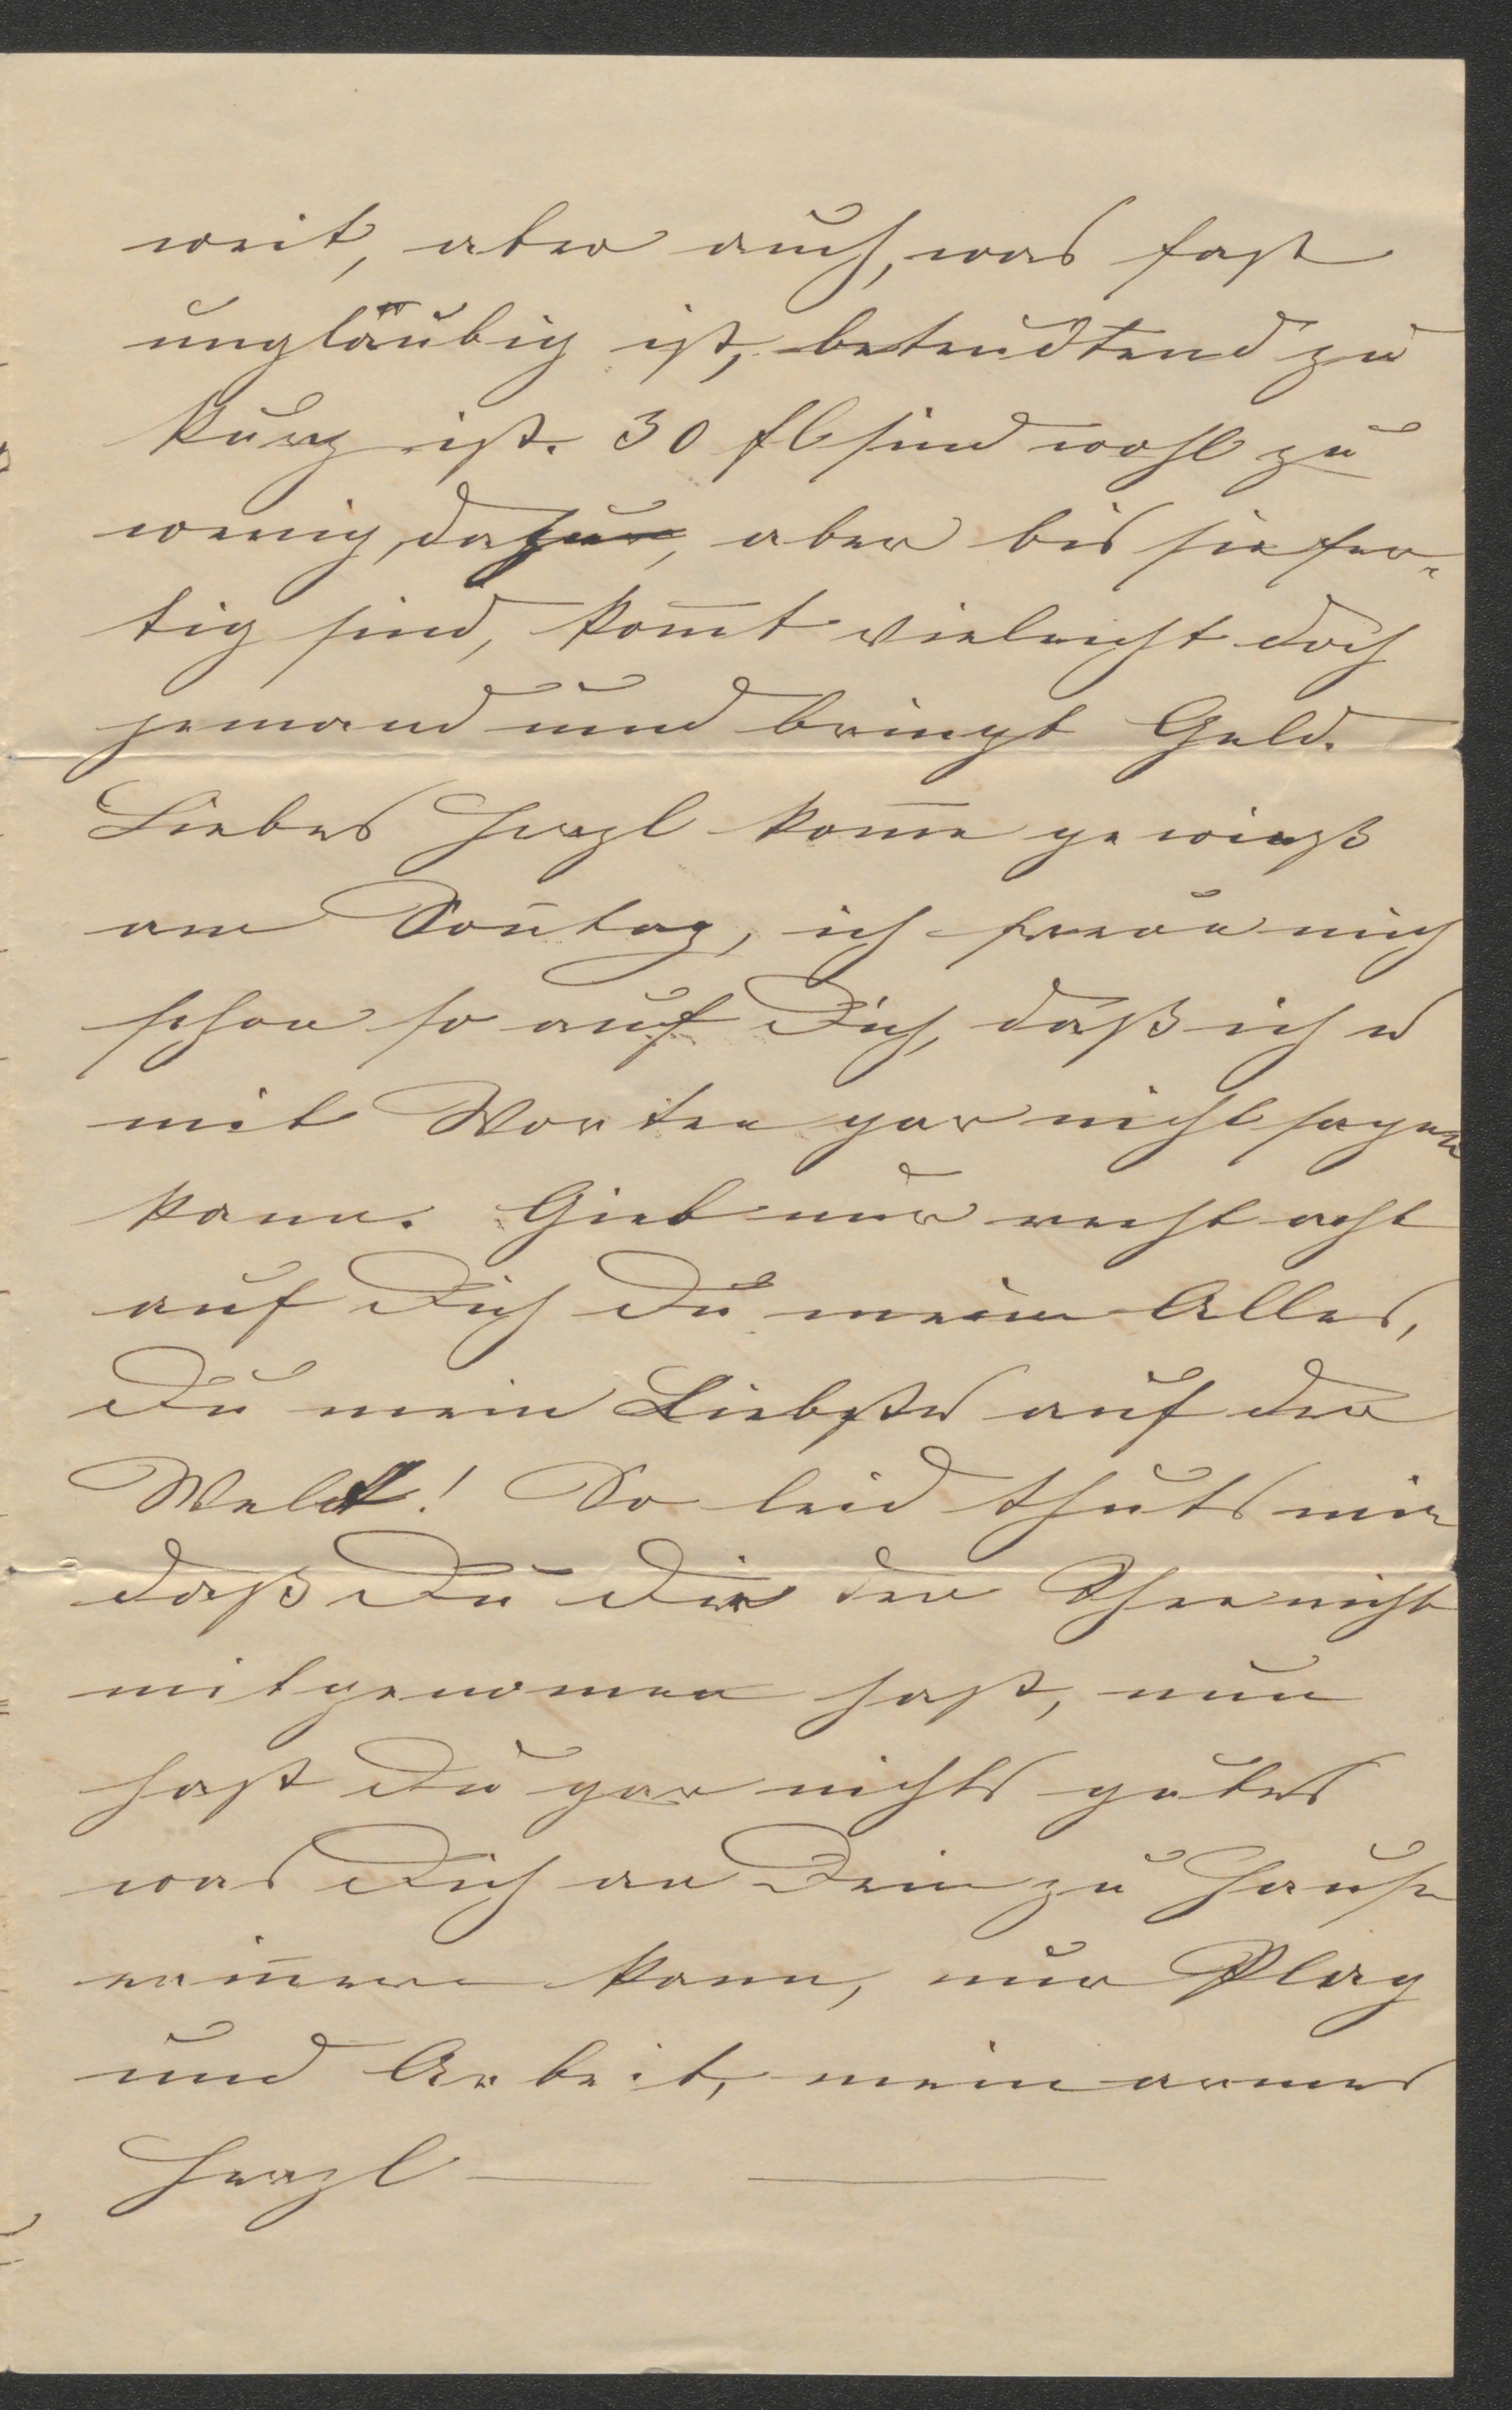 weit, aber auch, was fast
ungläubig ist, beteudtend zu
kurz ist. 30 fl sind wohl zu
wenig dazu, aber bis sie fer-
tig sind, kom̄t vieleicht doch
jemand und bringt Geld.
Liebes Herzl kom̄e gewieß
am Son̄tag, ich freue mich
schon so auf Dich, daß ich es
mit Worten gar nicht sagen
kann. Gieb nur recht acht
auf Dich Du mein Alles,
Du mein Liebstes auf der
Welt! So leid thuts mir
daß Du Dir den Thee nicht
mitgenomen hast, nun
hast Du gar nichts gutes
was Dich an Dein zu Hause
erin̄ern kann, nur Plag
und Arbeit, mein armes
Herzl —— ——